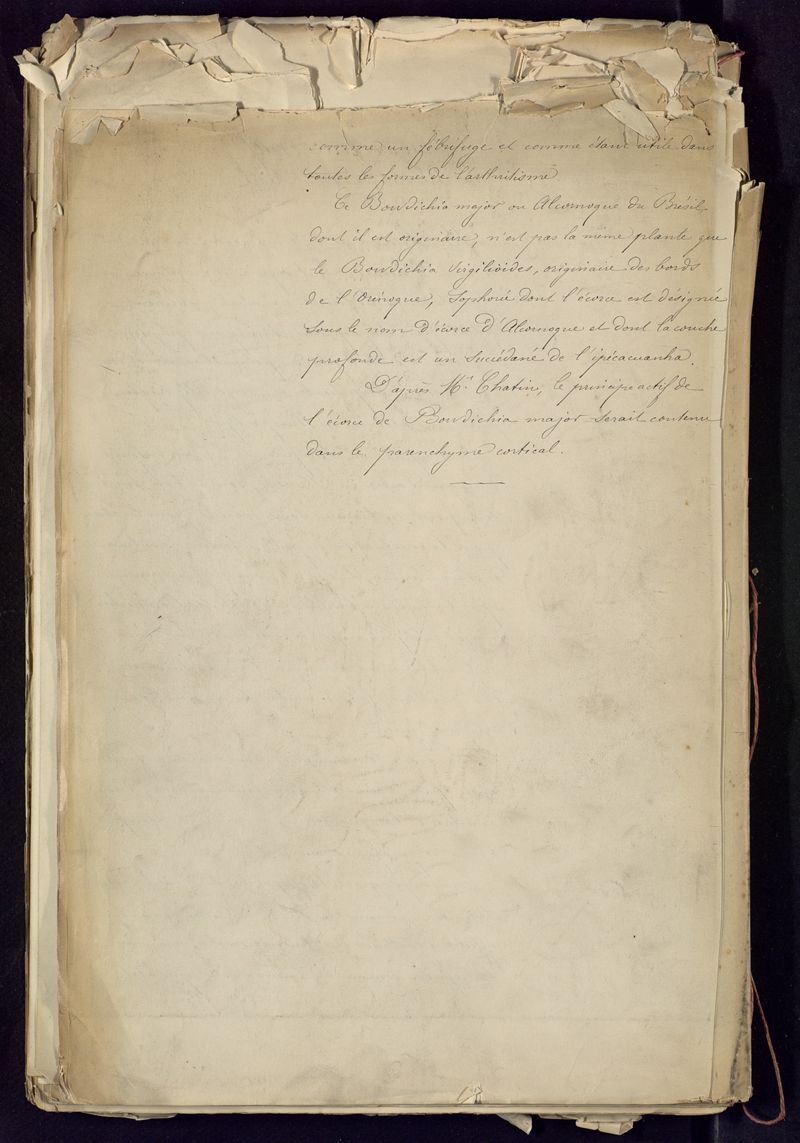 comme un fébrifuge et comme étant utile dans
toutes les formes de l'arthritisme
Le Bowdichia major ou Alcornoque du Brésil
dont il est originaire, n'est pas la même plante que
le Bowdichia Virgilioïdes, originaire des bords
de l'Orénoque, Sophorée dont l'écorce est désignée
sous le nom d'écorce d'Alcornoque et dont la couche
profonde est un succédané de l'ipécacuanha.
D'après Mr. Chatin, le principe actif de
l'écorce de Bowdichia major serait contenu
dans le parenchyme cortical.